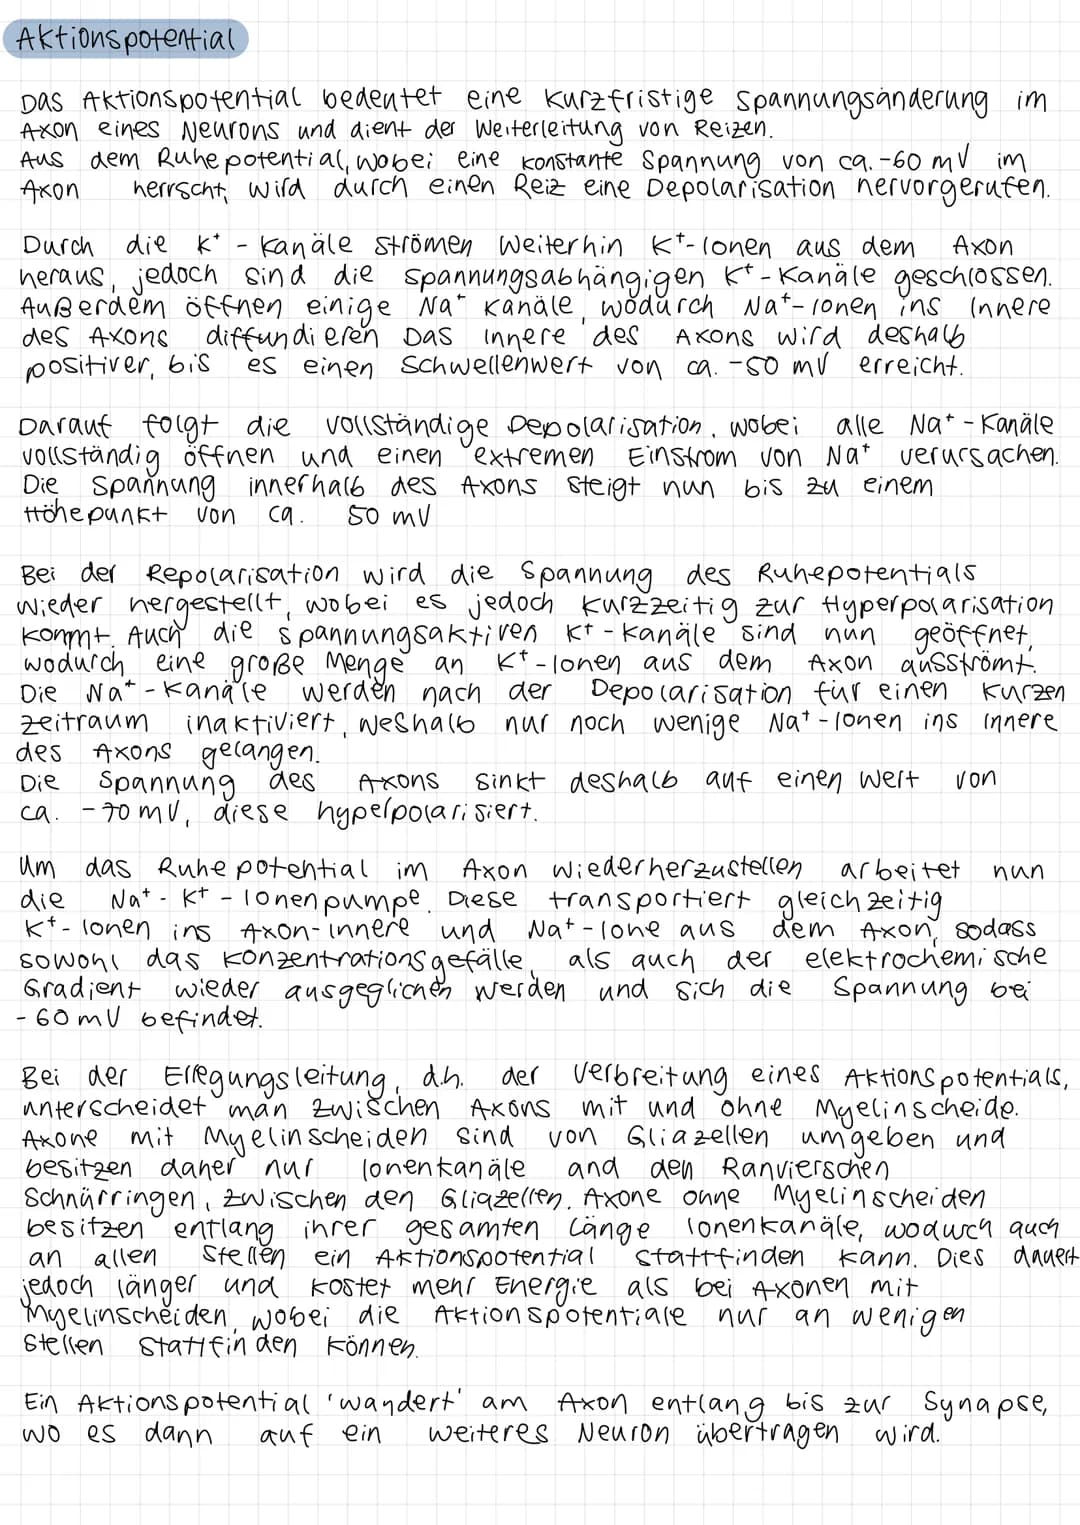 Aktionspotential
Das Aktionspotential bedeutet eine kurzfristige Spannungsänderung im
Axon eines Neurons und dient der Weiterleitung von Reizen.
Aus dem Ruhepotential, wobei eine konstante Spannung von ca. -60 mV im
Axon herrscht, wird durch einen Reiz eine Depolarisation hervorgerufen.
Durch die K⁺ - Kanäle strömen weiterhin K⁺-Ionen aus dem Axon
heraus, jedoch sind die spannungsabhängigen K⁺ - Kanäle geschlossen.
Außerdem öffnen einige Na⁺ Kanäle, wodurch Na⁺-Ionen ins Innere
des Axons diffundieren Das Innere des Axons wird deshalb
positiver, bis es einen Schwellenwert von ca. -50 mV erreicht.
Darauf folgt die vollständige Depolarisation, wobei alle Na⁺ - Kanäle
vollständig öffnen und einen extremen Einstrom von Na⁺ verursachen.
Die Spannung innerhalb des Axons steigt nun bis zu einem
Höhepunkt von ca. 50 mV
Bei der Repolarisation wird die Spannung des Ruhepotentials
wieder hergestellt, wobei es jedoch kurzzeitig zur Hyperpolarisation
kommt. Auch die spannungsaktiven K⁺ - Kanäle sind nun geöffnet,
wodurch eine große Menge an K⁺ - Ionen aus dem Axon ausströmt.
Die Na⁺ - Kanäle werden nach der Depolarisation für einen kurzen
Zeitraum inaktiviert, weshalb nur noch wenige Na⁺ - Ionen ins Innere
des Axons gelangen.
Die Spannung des Axons sinkt deshalb auf einen Wert von
ca. -70 mV, diese hyperpolarisiert.
Um das Ruhepotential im Axon wiederherzustellen arbeitet nun
die Na⁺ - K⁺ - Ionenpumpe. Diese transportiert gleichzeitig
K⁺ - Ionen ins Axon-Innere und Na⁺ - Ione aus dem Axon, sodass
sowohl das Konzentrationsgefälle, als auch der elektrochemische
Gradient wieder ausgeglichen werden und sich die Spannung bei
- 60 mV befindet.
Bei der Erregungsleitung, d.h. der Verbreitung eines Aktionspotentials,
unterscheidet man zwischen Axons mit und ohne Myelinscheide.
Axone mit Myelinscheiden sind von Gliazellen umgeben und
besitzen daher nur Ionenkanäle and den Ranvierschen
Schnürringen, zwischen den Gliazellen. Axone ohne Myelinscheiden
besitzen entlang ihrer gesamten Länge Ionenkanäle, wodurch auch
an allen Stellen ein Aktionspotential stattfinden kann. Dies dauert
jedoch länger und kostet mehr Energie als bei Axonen mit
Myelinscheiden, wobei die Aktionspotentiale nur an wenigen
Stellen stattfinden können.
Ein Aktionspotential 'wandert' am Axon entlang bis zur Synapse,
wo es dann auf ein weiteres Neuron übertragen wird.